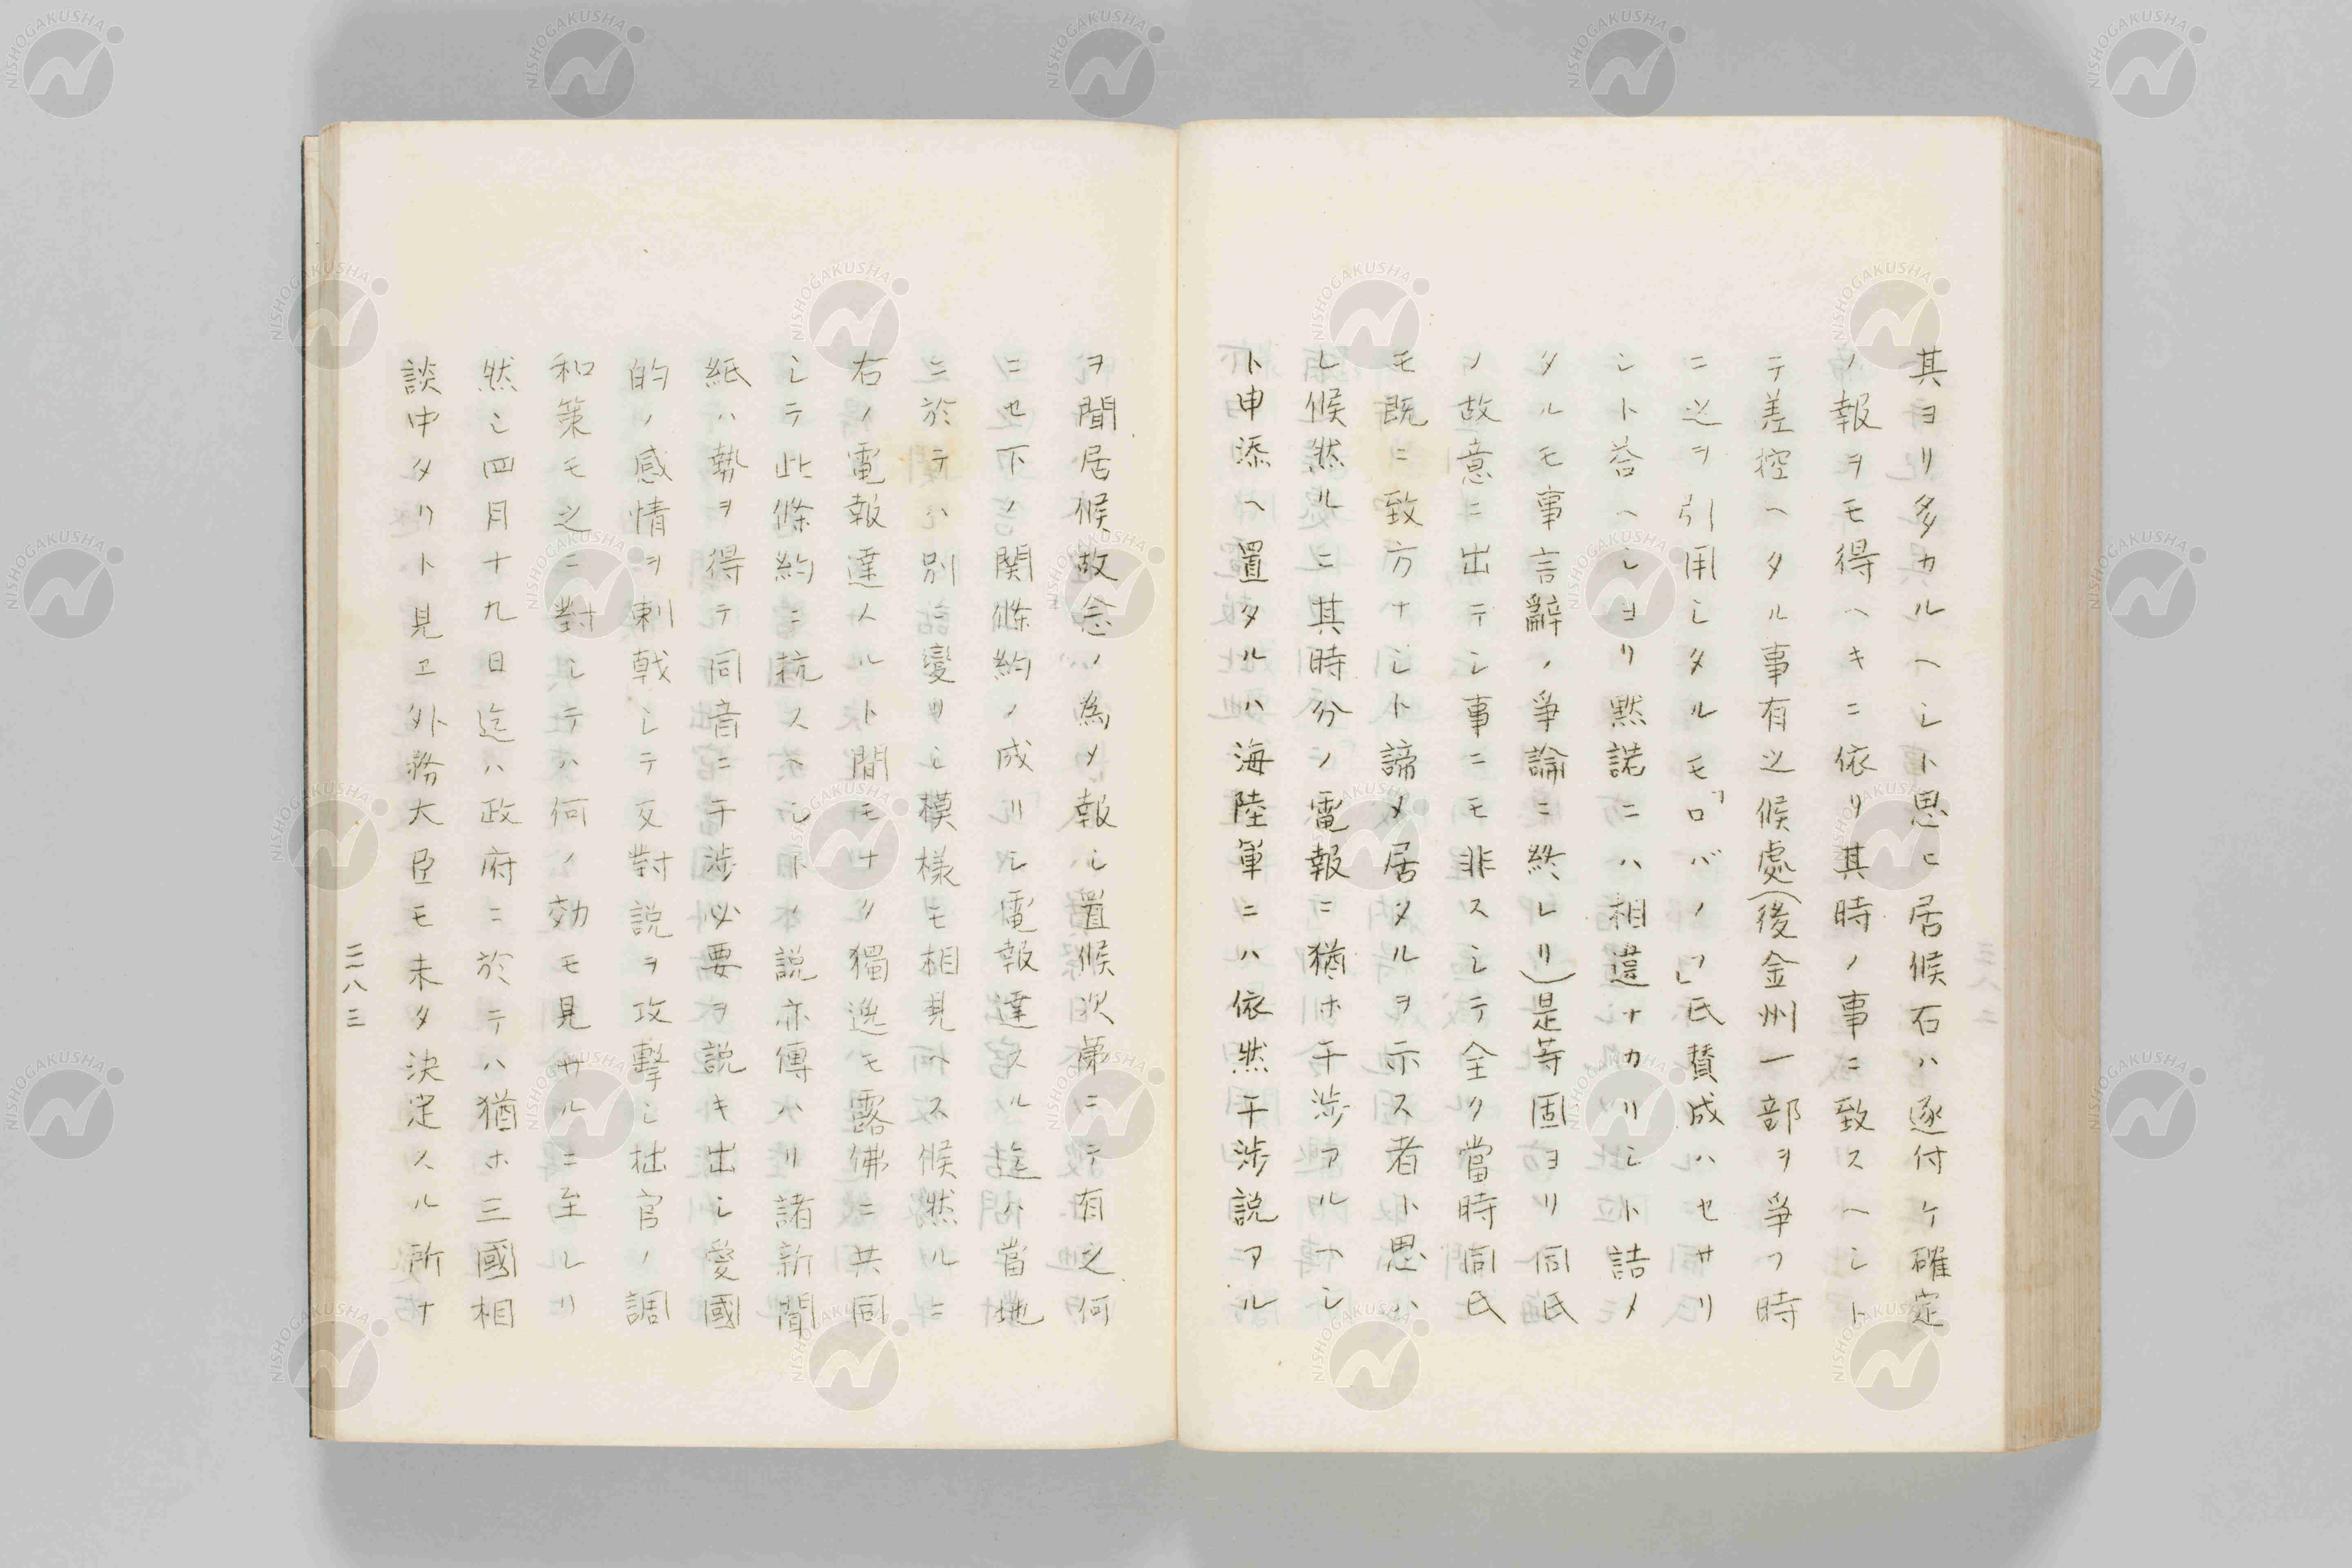 其ヨリ多カルヘシト思ヒ居候石ハ逐付ケ確定
ノ報ヲモ得ヘキニ依リ其時ノ事ニ致スヘシト
テ差控ヘタル事有之候處(後金州一部ヲ爭フ時
ニ之ヲ引用シタルモ「ロバノフ」氏賛成ハセサリ
シト答ヘシヨリ黙諾ニハ相違ナカリシト詰メ
タルモ事言辭ノ爭論ニ終レリ)是等固ヨリ同氏
ノ故意ニ出テシ事ニモ非スシテ全ク當時同氏
モ既ニ致方ナシト諦メ居タルヲ示ス者ト思ハ
レ候然ルニ其時分ノ電報ニ猶ホ干渉アルヘシ
ト申添ヘ置タルハ海陸軍ニハ依然干渉説アル
ヲ聞居候故念ノ為メ報シ置候次第ニテ有之何
ニセ下ノ関條約ノ成リシ電報達スル迄ハ當地
ニ於テハ別ニ變リシ模様モ相見ヘス候然ルニ
右ノ電報達スルト間モナク獨逸モ露佛ニ共同
シテ此條約ニ抗スヘシトノ説亦傳ハリ諸新聞
紙ハ勢ヲ得テ同音ニ干渉必要ヲ説キ出シ愛國
的ノ感情ヲ刺戟シテ反對説ヲ攻擊シ拙官ノ調
和策モ之ニ對シテハ何ノ効モ見サルニ至レリ
然シ四月十九日迄ハ政府ニ於テハ猶ホ三國相
談中タリト見ヱ外務大臣モ未タ決定スル所ナ
三八三
NISHOGAKUSHA